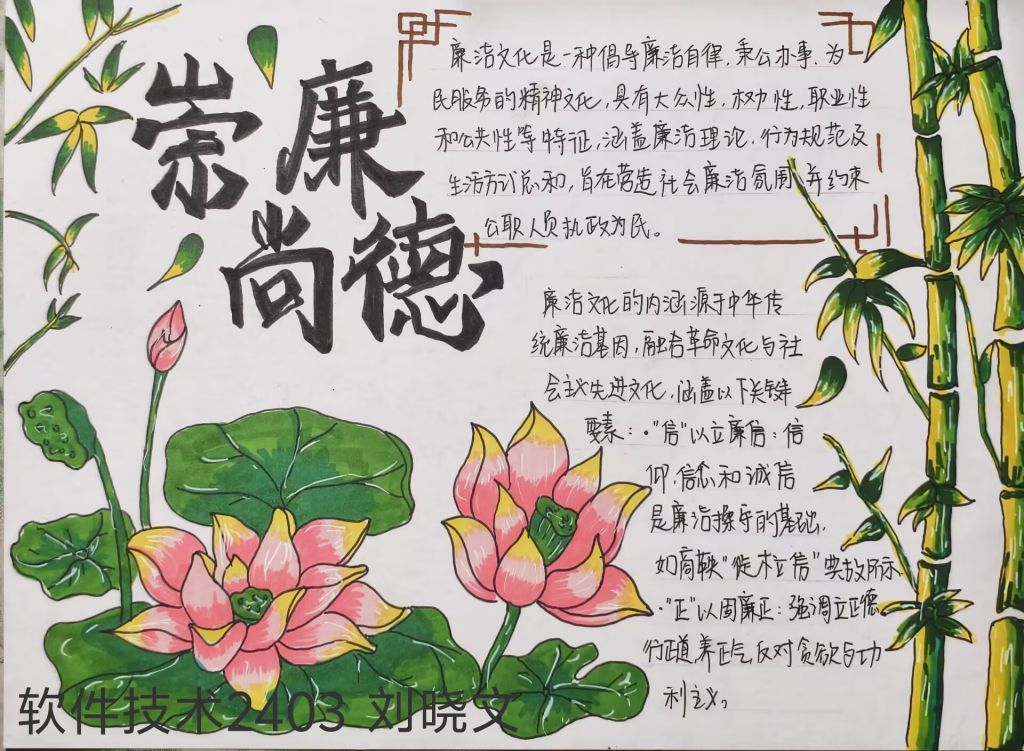 崇廉
尚德
廉洁文化是一种倡导廉洁自律，秉公办事，为
民服务的精神文化，具有大众性，权力性，职业性
和公共性等特征，涵盖廉洁理论，行为规范及
生活方式总和，旨在营造社会廉洁氛围，并约束
公职人员执政为民。
廉洁文化的内涵源于中华传
统廉洁基因，融合革命文化与社
会主义先进文化，涵盖以下关键
要素：·"信"以立廉信：信
仰，信念和诚信
是廉洁操守的基础，
如商鞅"徙木立信"典故所示
·"正"以固廉正：强调立正德，
行正道，养正气，反对贪欲与功
利主义。
软件技术2403 刘晓文